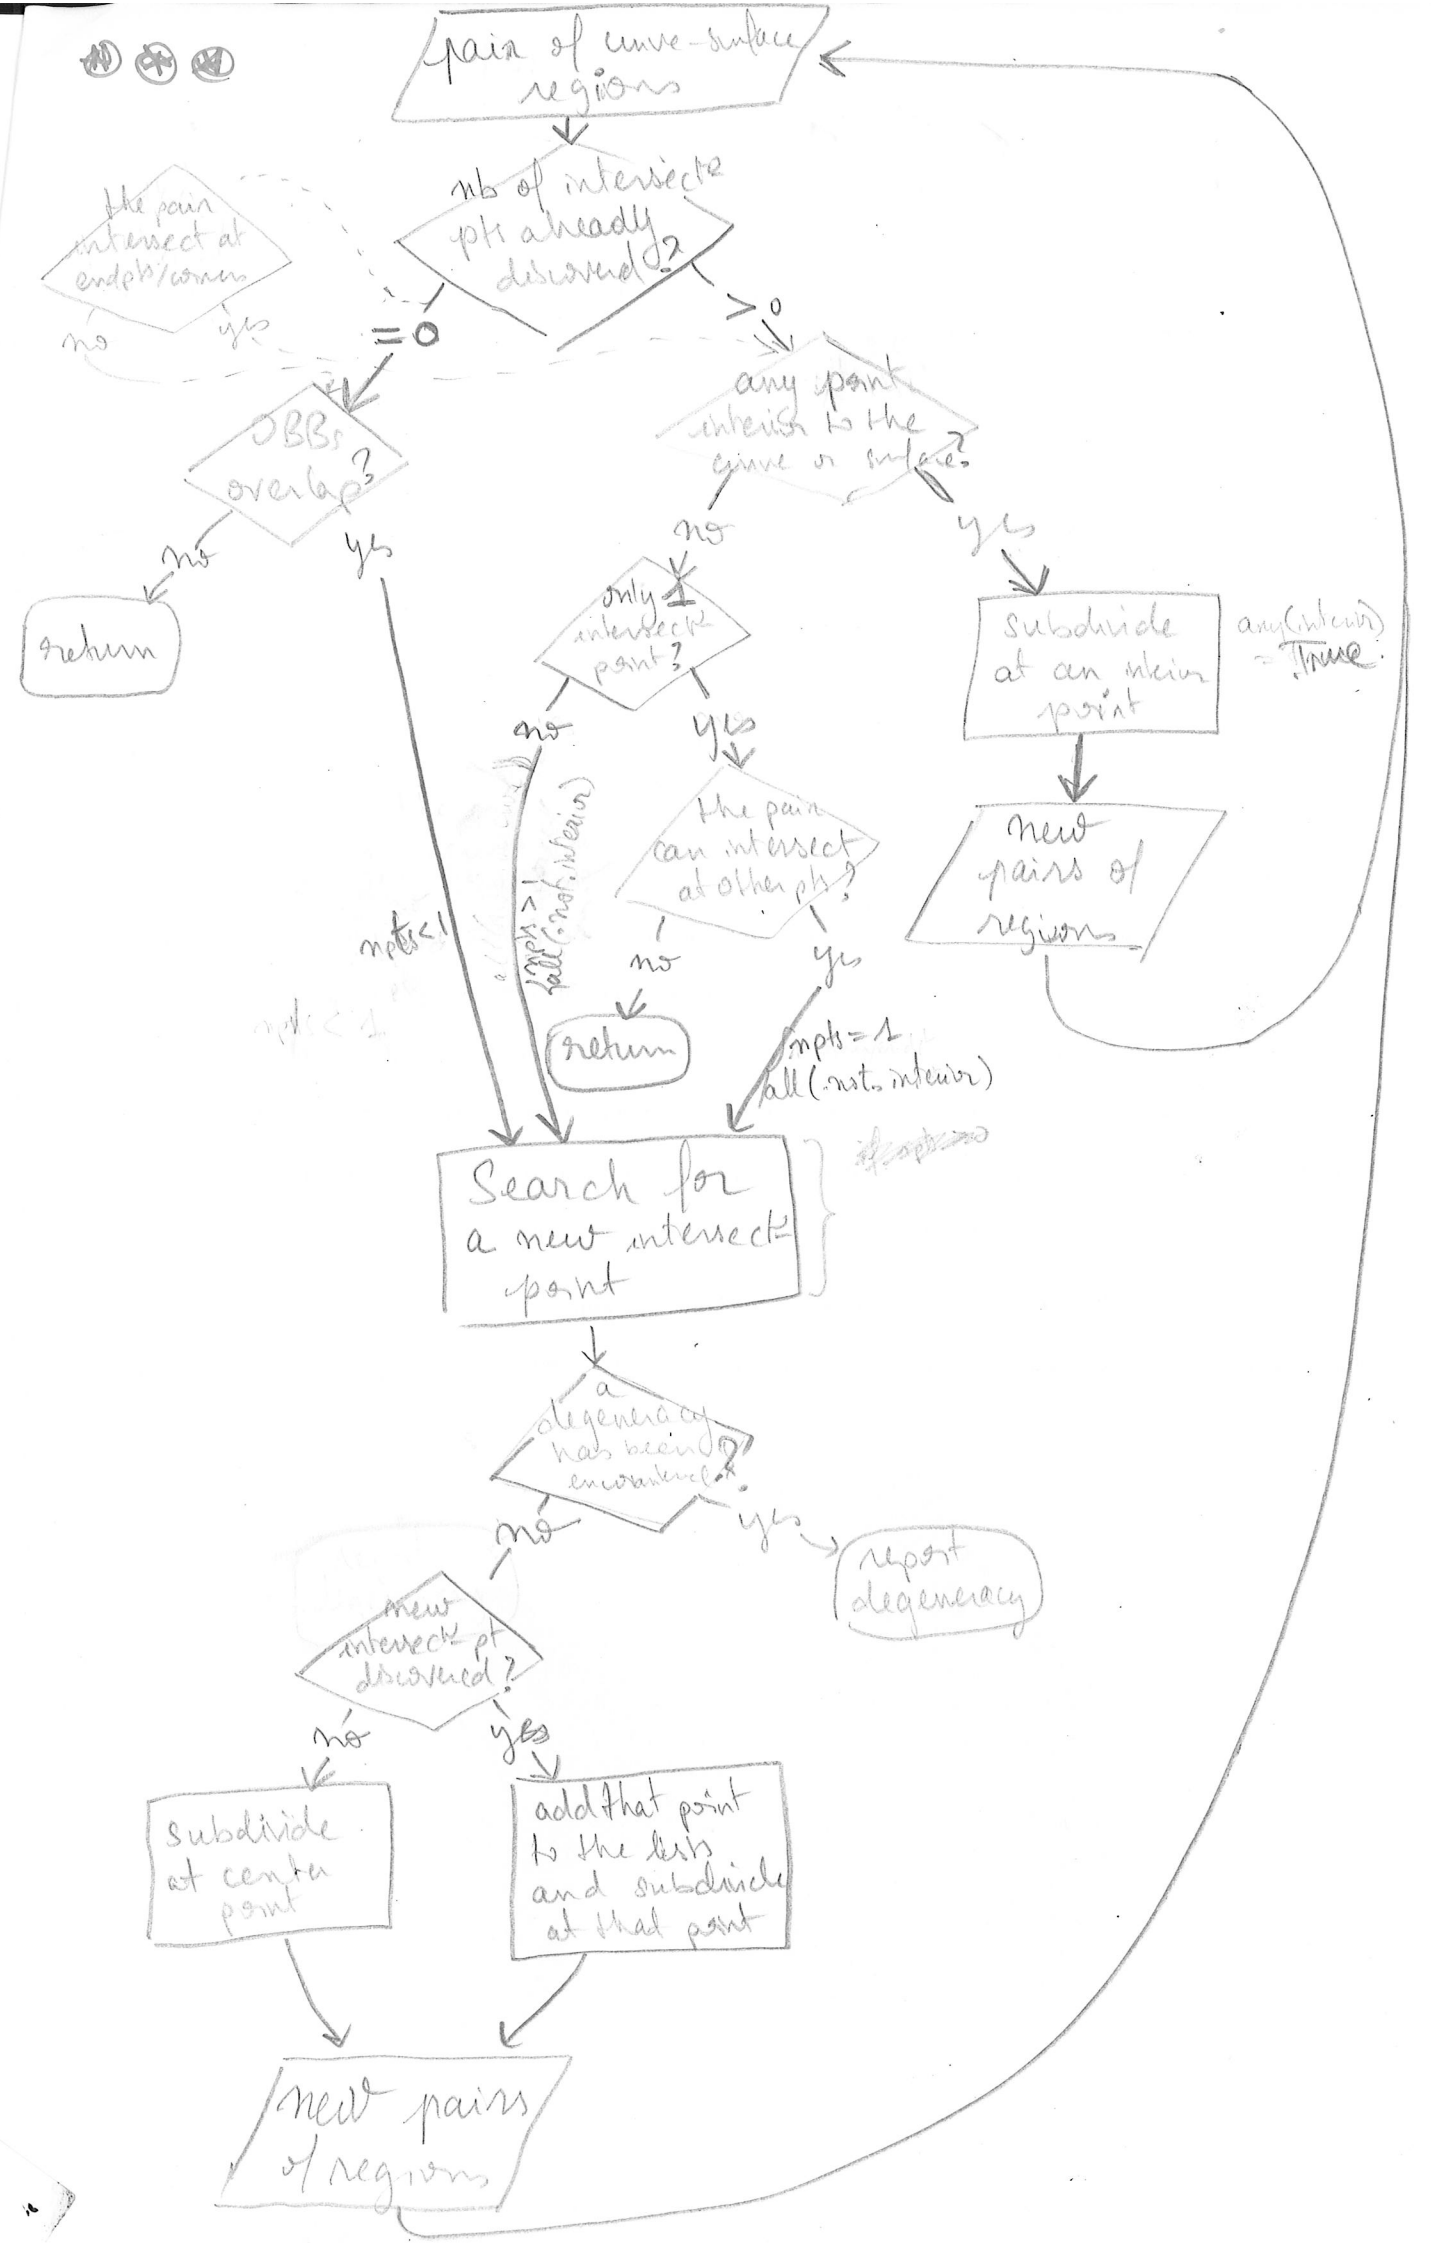 pair of curve-surface
regions
nb of intersect°
pts already
discovered?
the pair
intersect at
endpts/corners
no
yes
=0
>0
OBBs
overlap?
no
yes
return
any point
interior to the
curve or surface?
no
yes
only 1
intersect°
point?
no
yes
subdivide
at an interior
point
any(interior)
= True.
new
pairs of
regions
the pair
can intersect
at other pts?
no
yes
return
npts<1
npts >1
all(.not.interior)
npts < 1
npts=1
all(.not.interior)
Search for
a new intersect°
point
a
degeneracy
has been
encountered?
no
yes
report
degeneracy
new
intersect° pt
discovered?
no
yes
subdivide
at center
point
add that point
to the lists
and subdivide
at that point
new pairs
of regions